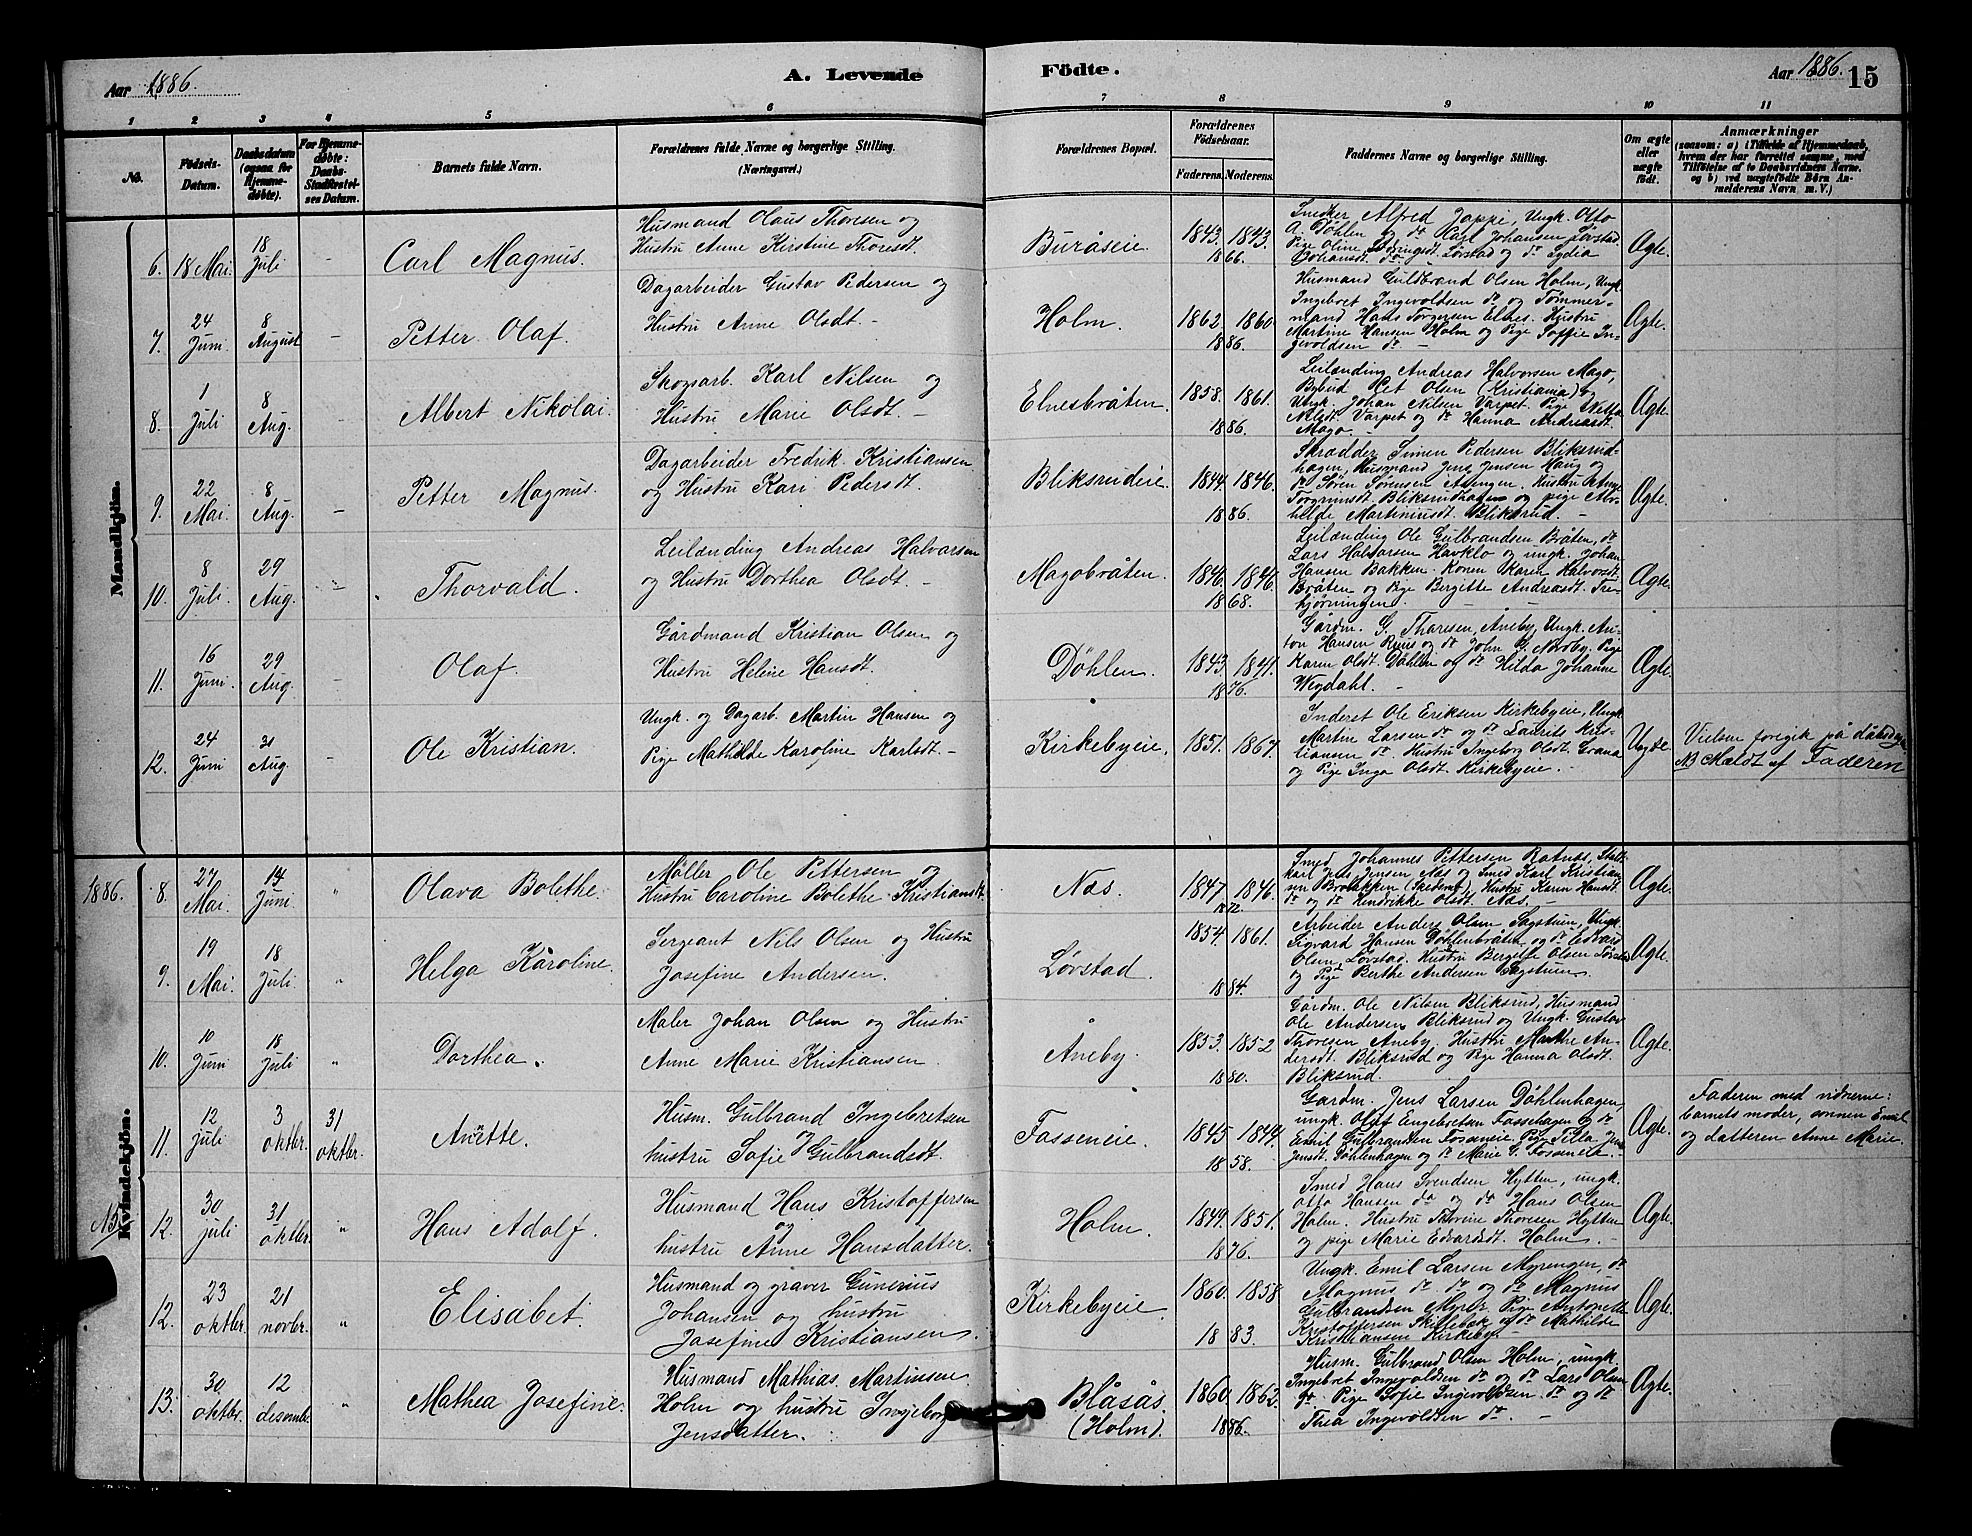 Aar 1886.
A. Levende Födte.
Aar 1886. 15
1 2 3 4 5 6 7 8 9 10 11
No.
Födsels-Datum.
Daabsdatum (ogsaa for Hjemme-döbte).
For Hjemme-döbte: Daabs-Stadfæstel-ses Datum.
Barnets fulde Navn.
Forældrenes fulde Navne og borgerlige Stilling.
(Næringsvei.)
Forældrenes Bopæl.
Forældrenes Födselsaar.
Faderens. Moderens.
Faddernes Navne og borgerlige Stilling.
Om ægte eller uægte födt.
Anmærkninger
(saasom: a) i Tilfælde af Hjemmedaab,
hvem der har forrettet samme, med
Tilföielse af to Daabsvidners Navne.
og b) ved uægtefödte Börn An-
melderens Navn m. V.)
Mandkjön.
6. 18 Mai. 18 Juli - Carl Magnus.
Husmand Olaus Thoresen og
Hustru Anne Kirstine Thoresdt.
Buråseie. 1843. 1843. 1866.
Snedker Alfred Jappe, Ungk. Otto
A. Døhlen og do Carl Johansen Løvstad.
Pige Oline
Johansdt. do Løvstad og do Lydia
Ægte.
7. 24 Juni. 8 August - Petter Olaf.
Dagarbeider Gustav Pedersen og
Hustru Anne Olsdt. -
Holm. 1862. 1860. 1886.
Husmand Guldbrand Olsen Holm, Ungk.
Ingebret Ingevoldsen do og Tømmer-
mand Hans Torgersen Elnes. Hustru
Martine Hansen Holm og Pige Soffie In-
gevoldsen do -
Ægte.
8. 1 Juli 8 Aug. - Albert Nikolai.
Skogsarb. Karl Nilsen og
Hustru Marie Olsdt. -
Elnesbråten. 1858. 1861. 1886.
Leilænding Andreas Halvorsen Mago,
Bybud Olsen (Kristiania) og
Ungk. Johan Nilsen Varpet. Pige Netta
Nilsdt. Varpet og do Hanna Andreasdt.
Mago. -
Ægte.
9. 22 Mai. 8 Aug. - Petter Magnus.
Dagarbeider Fredrik Kristiansen
og Hustru Kari Pedersdt.
Bliksrudeie. 1844. 1846. 1886.
Skrædder Simen Pedersen Bliksrud-
hagen, Husmand Jens Jensen Haug og
do Søren Sørensen Asengen. Hustru Anne
Torgrimsdt. Bliksrudhagen og pige Mat-
hilde Martiniusdt. Bliksrud. -
Ægte.
10. 8 Juli. 29 Aug. - Thorvald.
Leilænding Andreas Halvorsen
og Hustru Dorthea Olsdt. -
Magobråten. 1846. 1846. 1868.
Leilænding Ole Gulbrandsen Bråten, do
Lars Halvorsen Havklo og ungk. Johan
Hansen Bakken. Konen Karen Halvorsdt.
Bråten og Pige Bergitte Andreasdt. Tre-
hjørningen.
Ægte.
11. 16 Juni. 29 Aug. - Olaf.
Gårdmand Kristian Olsen og
Hustru Helene Hansdt.
Døhlen. 1843. 1841. 1876.
Gårdm. G. Thoresen, Aneby, Ungk. An-
ton Hansen Ruus og do John G. Nordby. Pige
Karen Olsdt. Døhlen og do Hilda Johanne
Wegdahl. -
Ægte.
12. 24 Juni 31 Aug. - Ole Kristian.
Ungk. og Dagarb. Martin Hansen og
Pige Mathilde Karoline Karlsdt. -
Kirkebyeie. 1851. 1867.
Inderst Ole Eriksen Kirkebyeie, Ungk.
Martin Larsen do og do Laurits Kris-
tiansen do. Hustru Ingeborg Olsdt. Grana
og Pige Inga Olsdt. Kirkebyeie. -
Uægte.
Vielsen foregik på dåbsdagen
NB Meldt af Faderen
Kvindekjön.
1886. 8. 27 Mai. 14 Juni. " Olava Bolethe.
Møller Ole Pettersen og
Hustru Caroline Bolethe Kristiansdt.
Næs. 1847. 1846. 1872.
Smed Johannes Pettersen Ratnæs, Stall-
karl Jens Jensen Næs og Smed Karl Kristian-
sen Brobakken (Skedsmo), Hustru Karen Hansdt.
do og do Hendrikke Olsdt. Næs. -
Ægte.
9. 19 Mai. 18 Juli. " Helga Karoline.
Sergeant Nils Olsen og Hustru
Josefine Andersen.
Løvstad. 1854. 1861. 1884.
Arbeider Anders Olsen Sagstuen, Ungk.
Sigvard Hansen Døhlenbråten og do Edvard
Olsen Løvstad. Hustru Bergitte Olsen Løvstad
og Pige Berthe Andersen Sagstuen.
Ægte.
10. 10 Juni 18 Juli " Dorthea.
Maler Johan Olsen og Hustru
Anne Marie Kristiansen.
Åneby. 1853. 1852 1880.
Gårdm. Ole Nilsen Bliksrud, Husmand
Ole Andersen Bliksrud og Ungk. Gustav
Thoresen Aneby. Hustru Marthe An-
dersdt. Bliksrud og Pige Hanna Olsdt.
Bliksrud.
Ægte.
11. 12 juli 3 oktbr. 31 oktbr. Anette.
Husm. Gulbrand Ingebretsen
og
hustru Sofie Gulbrandsdt.
Fosseneie. 1845. 1844. 1858.
Gaardm. Jens Larsen Døhlenhagen,
ungk. Olaf Engebretsen Fossehagen og do
Emil Gulbrandsen Fosseneie. Pige Tilla Jen
Jensdt. Døhlenhagen og do Marie G. Fosseneie. -
Ægte.
Faderen med vidnerne:
barnets moder, sønnen Emil
og datteren Anne Marie.
NB 12. 30 juli 31 oktbr. " Hans Adolf.
Husmand Hans Kristoffersen
og
hustru Anne Hansdatter.
Holm. 1849. 1851. 1876.
Smed Hans Svendsen Hytten, ungk.
Otto Hansen do og do Hans Olsen
Holm. Hustru Thorine Thoresen Hytten
og pige Marie Edvardsdt. Holm. -
Ægte.
12. 23 oktbr. 21 novbr. " Elisabet.
Husmand og graver Gunerius
Johansen og hustru
Josefine Kristiansen.
Kirkebyeie 1860. 1858 1883.
Ungk. Emil Larsen Myrengen, do
Magnus do do og do Magnus
Gulbrandsen Myrer. Pige Antonette
Kristoffersen Skillebæk og do Mathilde
Kristiansen Kirkeby. -
Ægte.
13. 30 oktbr. 12 desembr. " Mathea Josefine.
Husmand Mathias Martinsen
Holm og hustru Ingeborg
Jensdatter.
Blåsås. (Holm). 1860. 1862. 1886.
Husm. Gulbrand Olsen Holm, ungk.
Ingebret Ingevoldsen do og do Lars Olsen
do. Pige Sofie Ingevoldsen do og do
Thea Ingevoldsen do. -
Ægte.